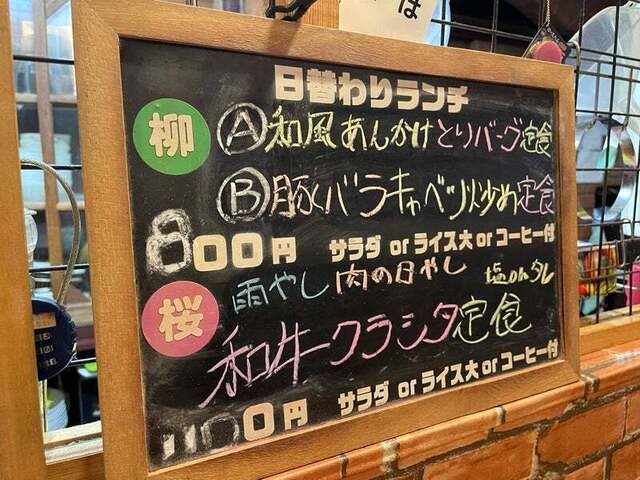 は
日替わりランチ
柳
Ⓐ和風あんかけとりバーグ定食
Ⓑ豚バラキャベツ炒め定食
800円 サラダ or ライス大 or コーヒー付
桜
雨やし 肉の日やし 塩 or タレ
和牛クラシタ定食
1100円 サラダ or ライス大 or コーヒー付